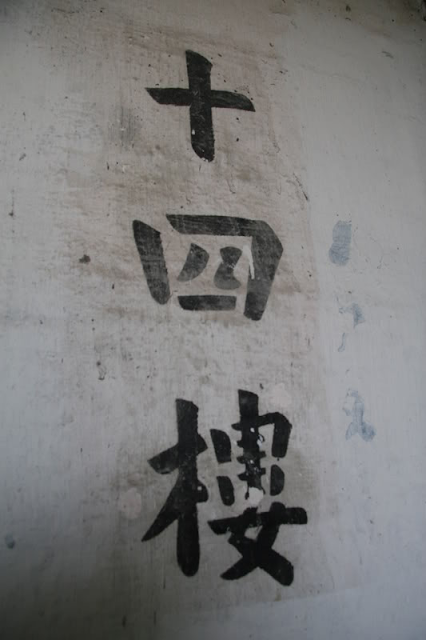 十四樓